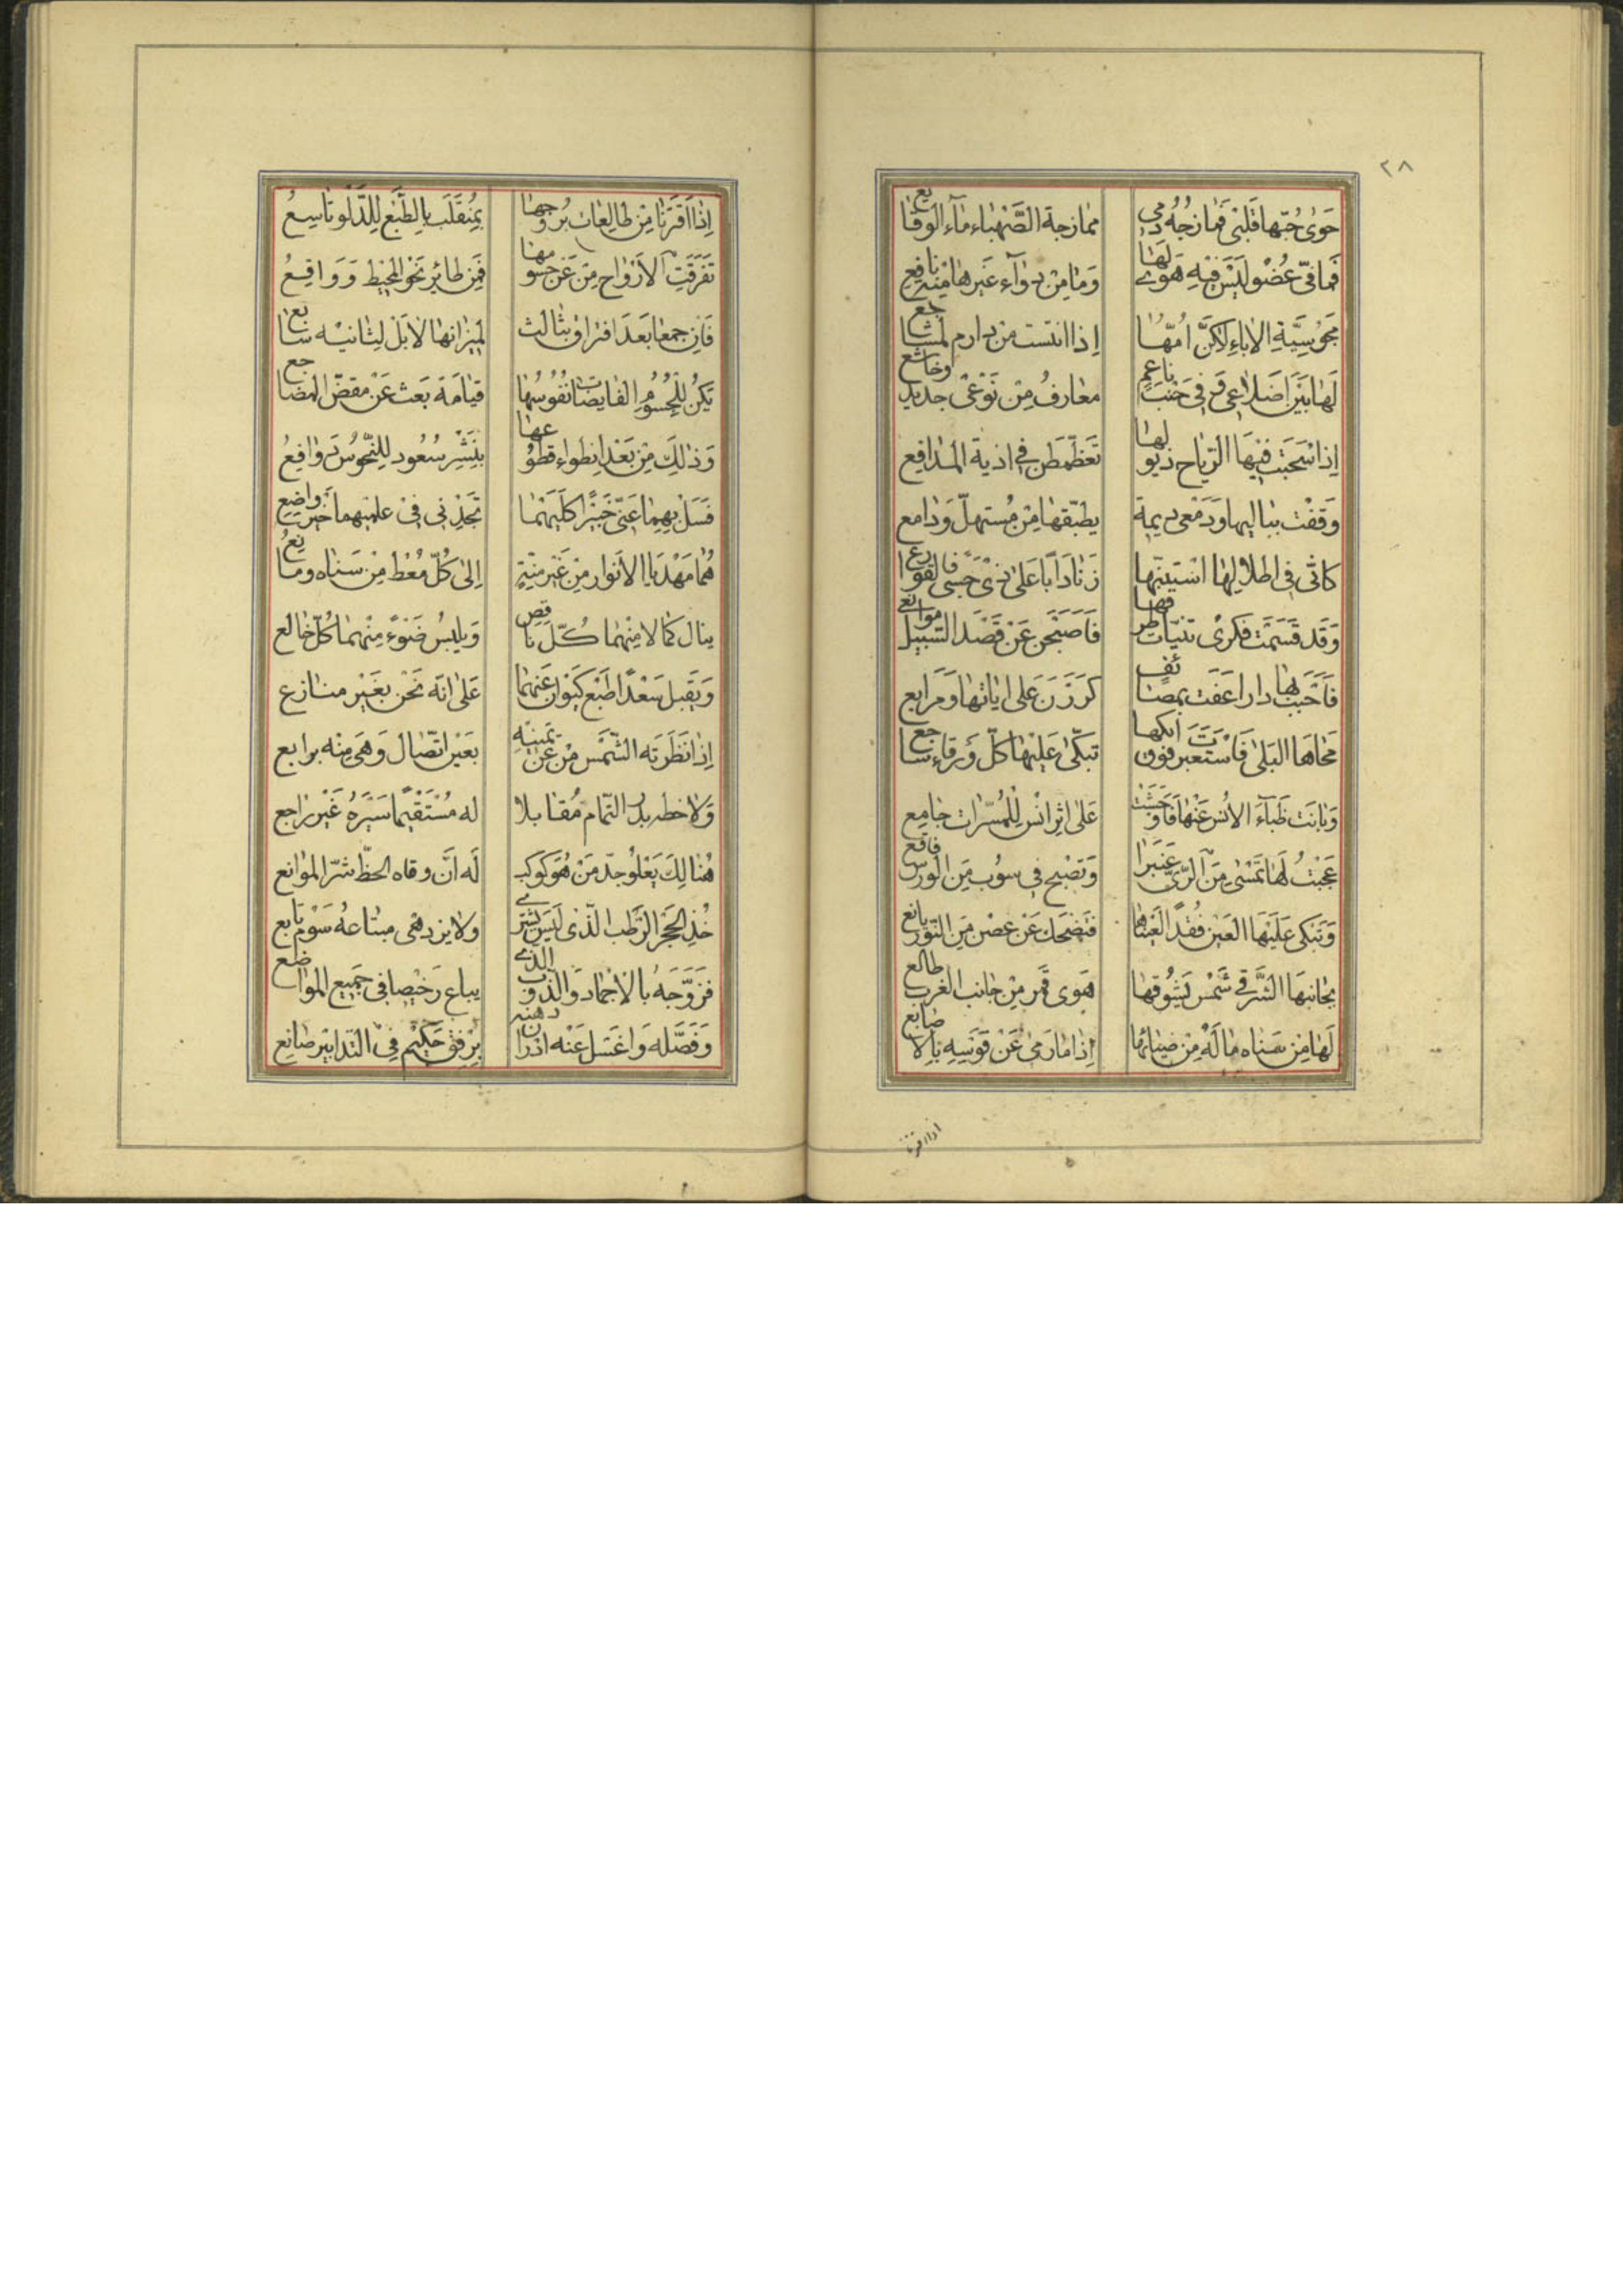 ٢٨
حَوٰى حُبّها قَلْبى فَمازجُهُ دَمى ممازجة الصَّهْباء ماٰء الوقايع
فما فىّ عُضْو لَيْسَ فيْهِ لَهَا هَوى وَمٰا مِنْ دوآء غَيرهٰا فيْه نافع
مَجُوسِيَّة الاٰباءِ لاكنَّ امّهٰا اِذا انتست من دارم لمشاجع
لَهٰا بَيْنَ اَضْلاعى وفى جَنْبَ ناعمٍ معارفُ مِنْ نَوْعىْ جديد وخاشع
اِذا سَحَبَت فيْهَا الرّيٰاح ذيولهٰا تَغَطْمَطن فى اذية المدافع
وَقَفْت بِنٰا اليها وَدَمْعى ديمة يطبّقهٰا مِنْ مُستهلّ وَدٰامع
كانّى فى اطلاٰلِهٰا اسْتبينهٰا زنادَ اَبًا عَلىٰ ذىْ حَسى فالقوارع
وَقَد قَسَمَت فكرىْ ثنيّات طرفهٰا فَاَصْبَحن عَنْ قَصْد السّبيل موانع
فَاَحْبب بهٰا دارا عَفَت بمصائف كرَرْنَ عَلى اٰياتهٰا وَمَرابع
محاهَا البَلىٰ فَاسْتعبرت فوق ايكها تبكّى عَليْهٰا كلّ وَرقاء سٰاجع
وَبٰانَت ظبآءَ الاُنْس عَنْهٰا فَاوحَشَت عَلىٰ اثر انْسٍ لِلْمُسّرات جٰامع
عَجبْتُ لَهٰا تمْسٰى مِنَ الرّىّ عَنبَرا وَتصْبح فى سوب مِن الورس فاقع
وَتَبْكى عَلَيْهَا العَين فقْدًا لعَيْنهٰا فتضحك عَنْ غصْن مِن النّور يانع
بجانبهَا الشَّرقى شَمْس يَشُوقهٰا هَوى قمر مِنْ جٰانب الغرب طالع
لَهٰا مِنْ سَناه مٰا لَهُ مِنْ ضيٰائهٰا اِذا مٰا رَمىٰ عَنْ قَوْسِهِ بالاصابع
اذا اقترنا
اِذا اقترَنٰا مِنْ طالِعات بُروجهٰا بمُنقَلَب بالطّبْع لِلدَّلو تاسِعُ
تَفَرّقتِ الاَرْوٰاح مِنْ عَنْ جسومهٰا فَمِن طائِر نَحْو المحيْط وَوَاقعُ
فَاِن جمعٰا بَعدَ افتراق بثالث لميزانهٰا لاٰ بَلْ لِثانيْه سٰابعُ
تَكُنْ لِلْجُسُوم الفايضات نفُوسُهٰا قيامَة بَعث عَنْ مقضّ المضٰاجع
وَذٰلِكَ مِنْ بَعْد اِنطواء قطوعهٰا بِنَشْر سُعُود لِلنّحوسْ دوٰافِعُ
فَسَلْ بهِمٰا عَنّى خَبيْرًا كلَيهمٰا تجدْنى فىْ علمَيهما خير واضع
هُمٰا مَهْدَيا الاَنوار مِنْ غَيْر مِنّةٍ اِلىٰ كُلّ مُعْط مِنْ سَنٰاه ومٰايعُ
ينٰال كمٰالا مِنْهمٰا كُلّ ناقص وَيلبسُ ضَوْءً مِنْهمٰا كُلّ خٰالع
وَيَقبل سَعْدًا طَبْع كَيْوٰان عَنهمٰا عَلىٰ انّه نَحْن بغَيْر منٰازع
اِذا نَظَرَته الشّمْس مْن عَنْ يَمينِهِ بعَيْن اتّصٰال وَهىَ مِنْه برابع
وَلاٰحظه بدر التّمام مُقٰابلا له مُسْتَقيْمًا سَيْرُهُ غَيْر رٰاجع
هُنٰالِكَ يَعْلُو جدّ مَنْ هُوَ كَوْكب لَه انَّ وقاه الحظّ شرّ المواٰنع
خُذِ الحَجَر الرَّطب الّذى لَيسَ يشترى ولاٰ يزدهى مبتاعهُ سَوْم بايع
فزَوّجَهُ بالاجماد وَالذّوب الذى يباع رَخيْصا فى جَميع المواضع
وَفَصّله وَاغسَل عَنْه ادراٰن دهنه برْفق حَكيْم فىْ التّدابيْر صٰانع